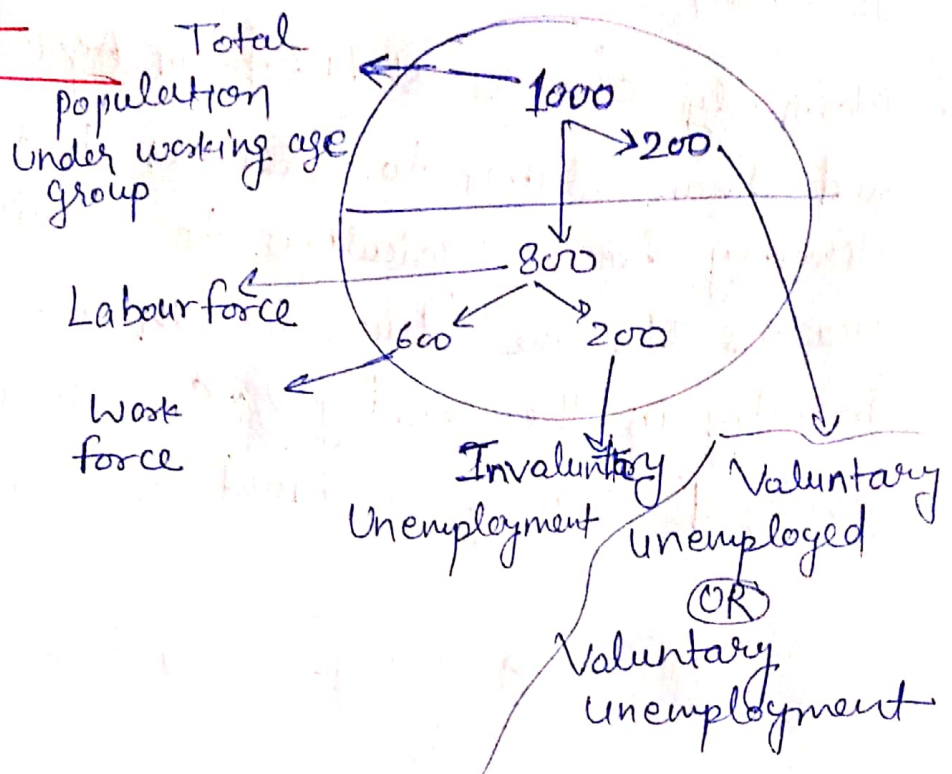 Total
population
under working age
group
1000
200
800
Labour force
600
200
Work
force
Invaluntary
Unemployment
Valuntary
unemployed
OR
Valuntary
unemployment